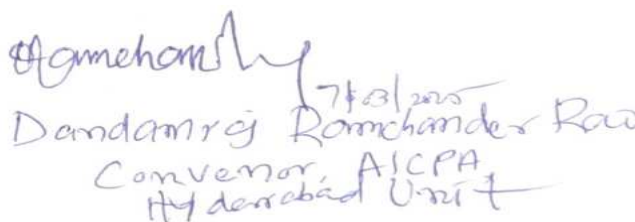 7/03/2025
Dandamraj Ramchander Rao
Convenor, AICPA,
Hyderabad Unit